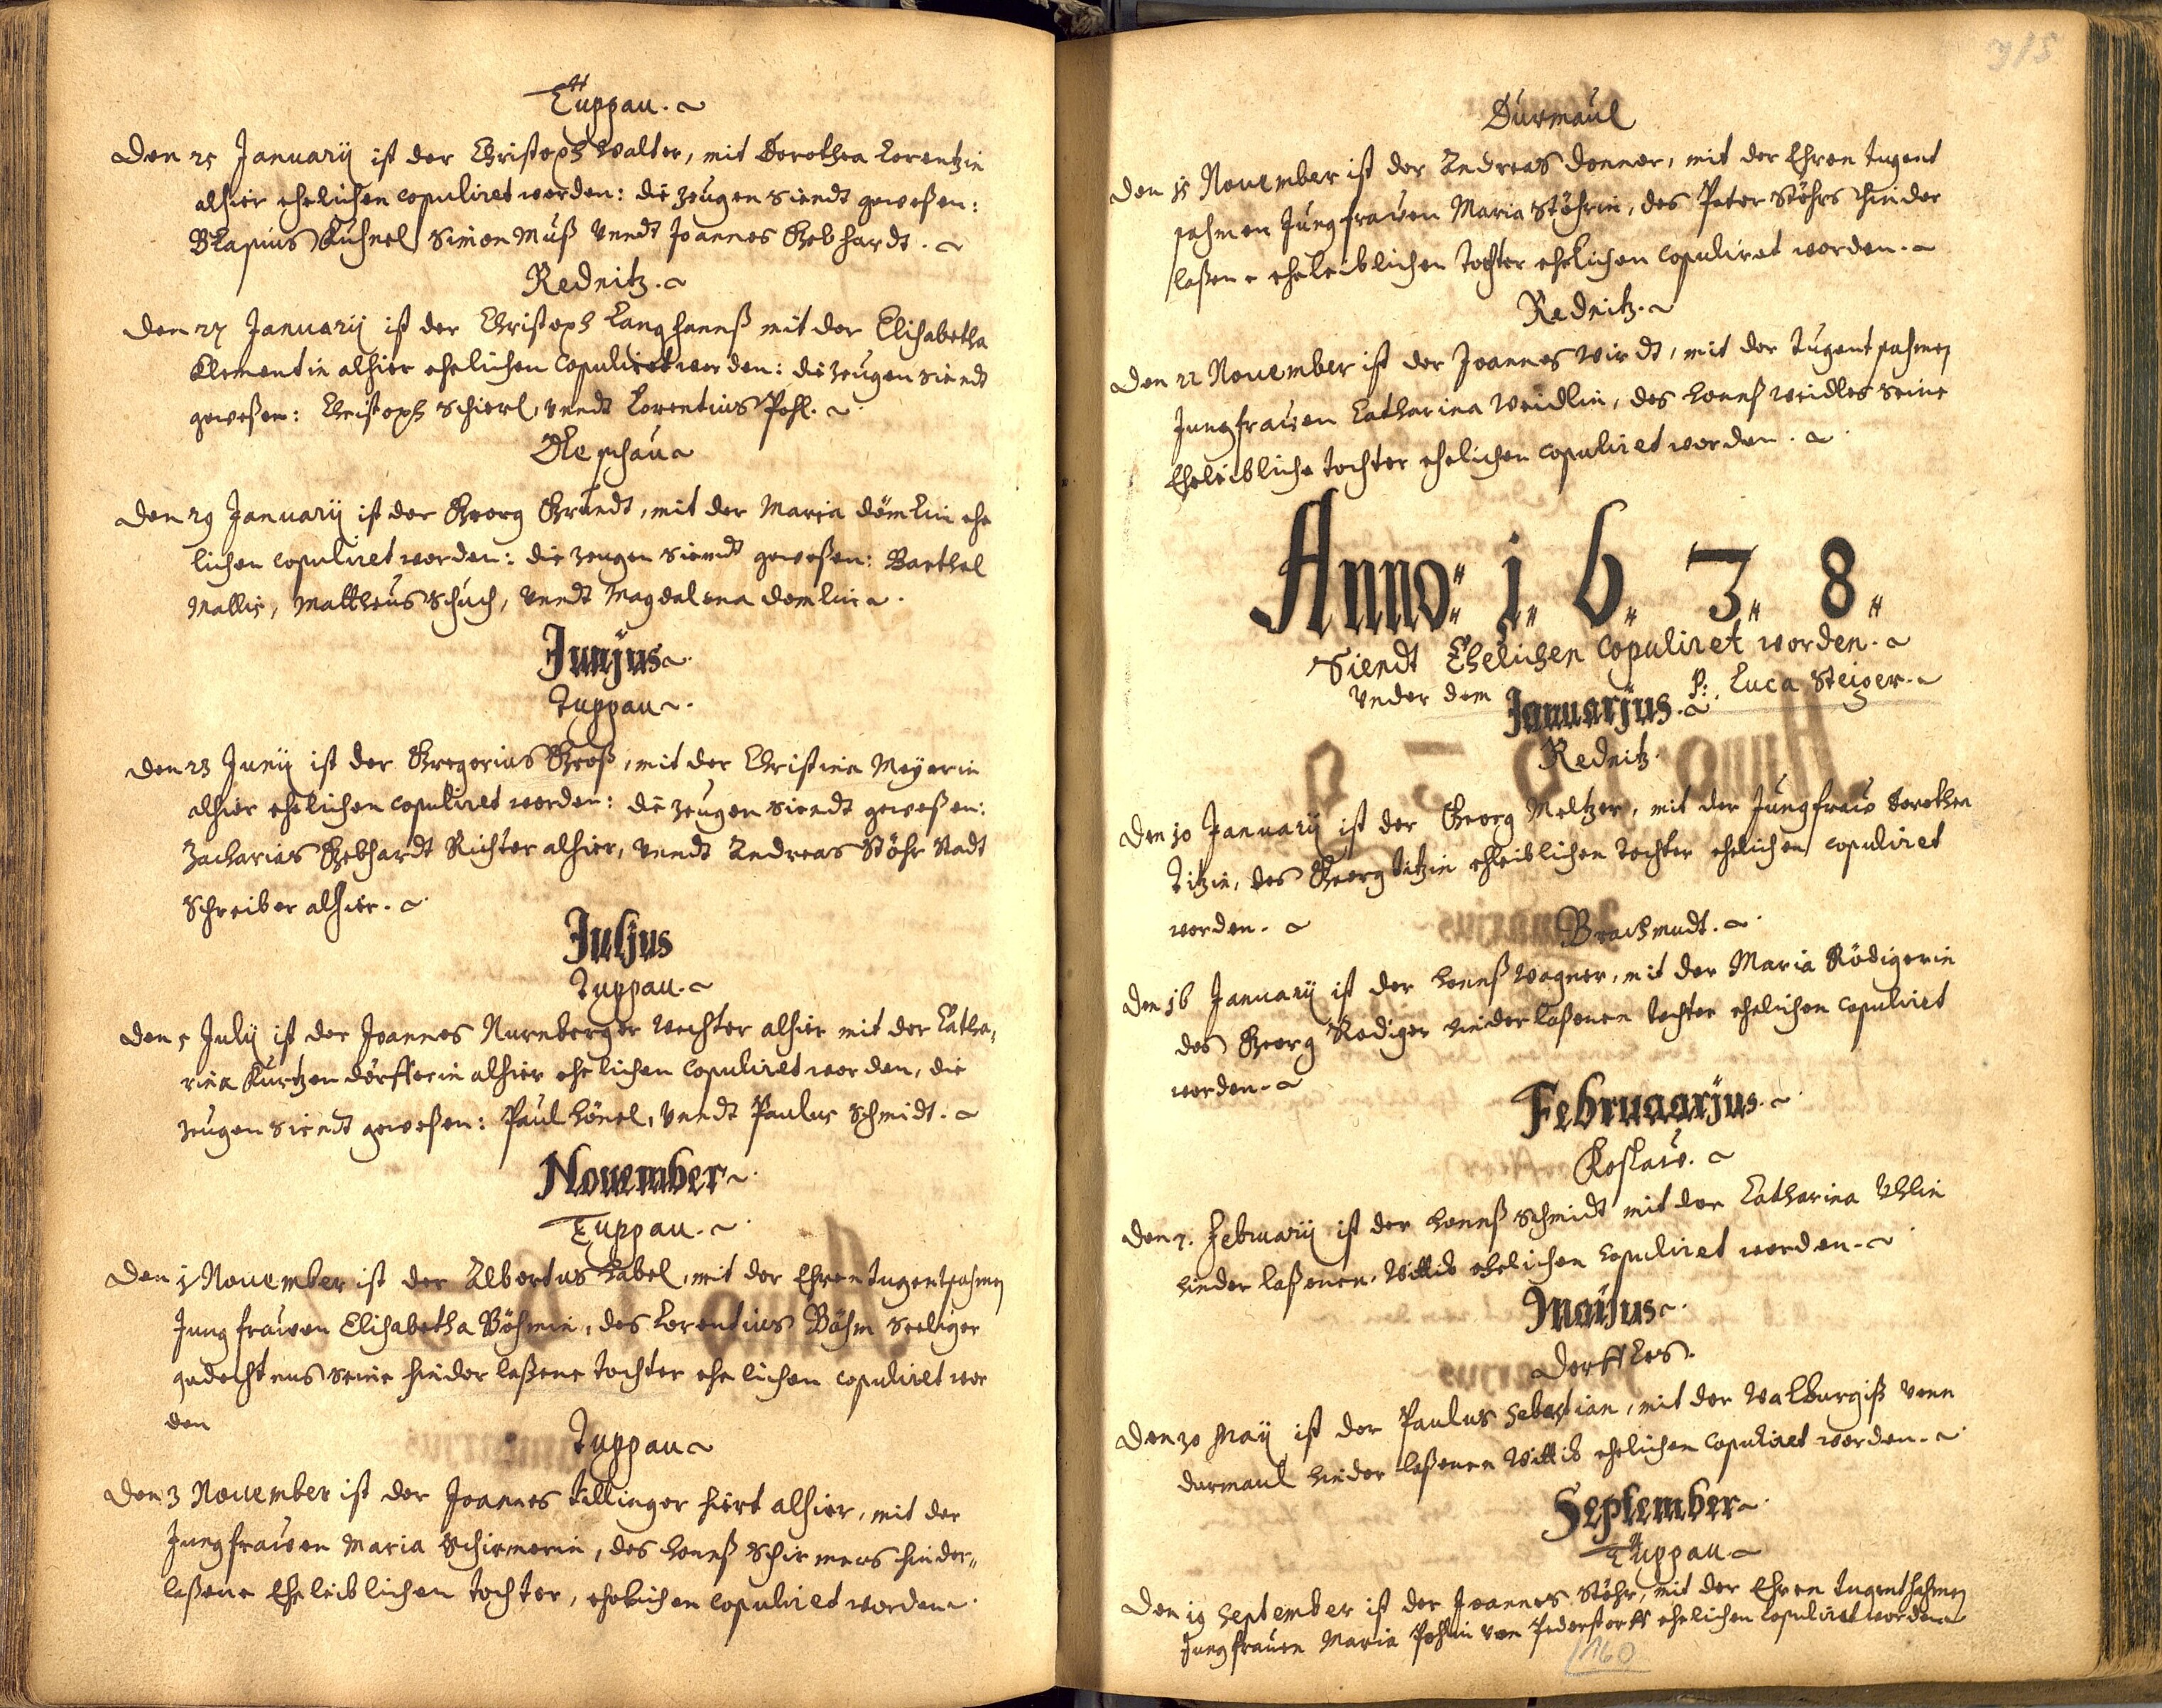 Tuppau.
Den 25 Januarij ist der Christoph Walter, mit Dorothea Lorentzin
alhier ehelichen copuliret worden: die zeugen siendt geweßen:
Blasius Kuhnel Simon Muß vndt Joannes Gebhardt.
Rednitz.
Den 27 Januarij ist der Christoph Langhannß mit der Elisabetha
Klementin alhier ehelichen copuliret worden: die zeugen siendt
geweßen: Christoph Schierl, vndt Lorentius Pohl.
Oleschau
Den 29 Januarij ist der Georg Grundt, mit der Maria dömlin ehe
lichen copuliret worden: die zeugen siendt geweßen: Barthel
Mallis, Mattheus Schuch, vndt Magdalena domlin.
Junjus
Tuppau.
Den 23 Junij ist der Gregorius Groß, mit der Christina Meyerin
alhier ehelichen copuliret worden: die zeugen siendt geweßen:
Zacharias Gebhardt Richter alhier, vndt Andreas Stöhr Stadt
Schreiber alhier.
Juljus
Tuppau.
Den 5 Julij ist der Joannes Nurnberger Wechter alhier mit der Catha,
rina Kurtzendörfferin alhier ehelichen copuliret worden, die
zeugen siendt geweßen: Paul Hönel, vndt Paulus Schmidt.
Nouember
Tuppau.
Den 1 Nouember ist der Albertus Habel, mit der Ehrentugentsahmen
Jungfrauen Elisabetha Böhmin, des Lorentius Böhm seeliger
gedechtnus seine hinderlaßene tochter ehelichen copuliret wor
den
Tuppau
Den 3 Nouember ist der Joannes tillinger hiert alhier, mit der
Jungfrauen Maria Schirmerin, des Hannß Schirmers hinder,,
laßene Eheleiblichen tochter, ehelichen copuliret worden.
Durmaul
Den 15 Nouember ist der Andreas Donner, mit der Ehren tugent
sahmen Jungfrauen Maria Stöhrin, des Peter Stöhrs hinder
laßene eheleiblichen tochter ehelichen copuliret worden.
Rednitz.
Den 22 Nouember ist der Joannes Wirdt, mit der tugentsahmen
Jungfrauen Catharina Weidlin, des Hannß Weidles seine
Eheleibliche tochter ehelichen copuliret worden.
Anno 1638
Siendt Ehelichen copuliret worden.
Vnder dem P: Luca Steiger.
Januarjus.
Rednitz.
Den 10 Januarij ist der Georg Meltzer, mit der Jungfrau Dorothea
titzin, des Georg titzin eheleiblichen tochter ehelichen copuliret
worden.
Brachmudt.
Den 16 Januarij ist der Hannß Wagner, mit der Maria Rödigerin
des Georg Rodiger hinderlaßenen tochter ehelichen copuliret
worden.
Februaarjus.
Koslau.
Den 7. Februarij ist der Hannß Schmidt mit der Catharina Vhlin
hinderlaßenen Wittib ehelichen copuliret worden.
Maijus
Dorffles.
Den 30 Maij ist der Paulus Sebastian, mit der Walburgiß vonn
durmaul hinderlaßenen Wittib ehelichen copuliret worden.
September
Tuppau
Den 19 September ist der Joannes Stöhr, mit der Ehren tugenthsahmen
Jungfrauen Maria Pohlin von ehelichen copuliret worden
160